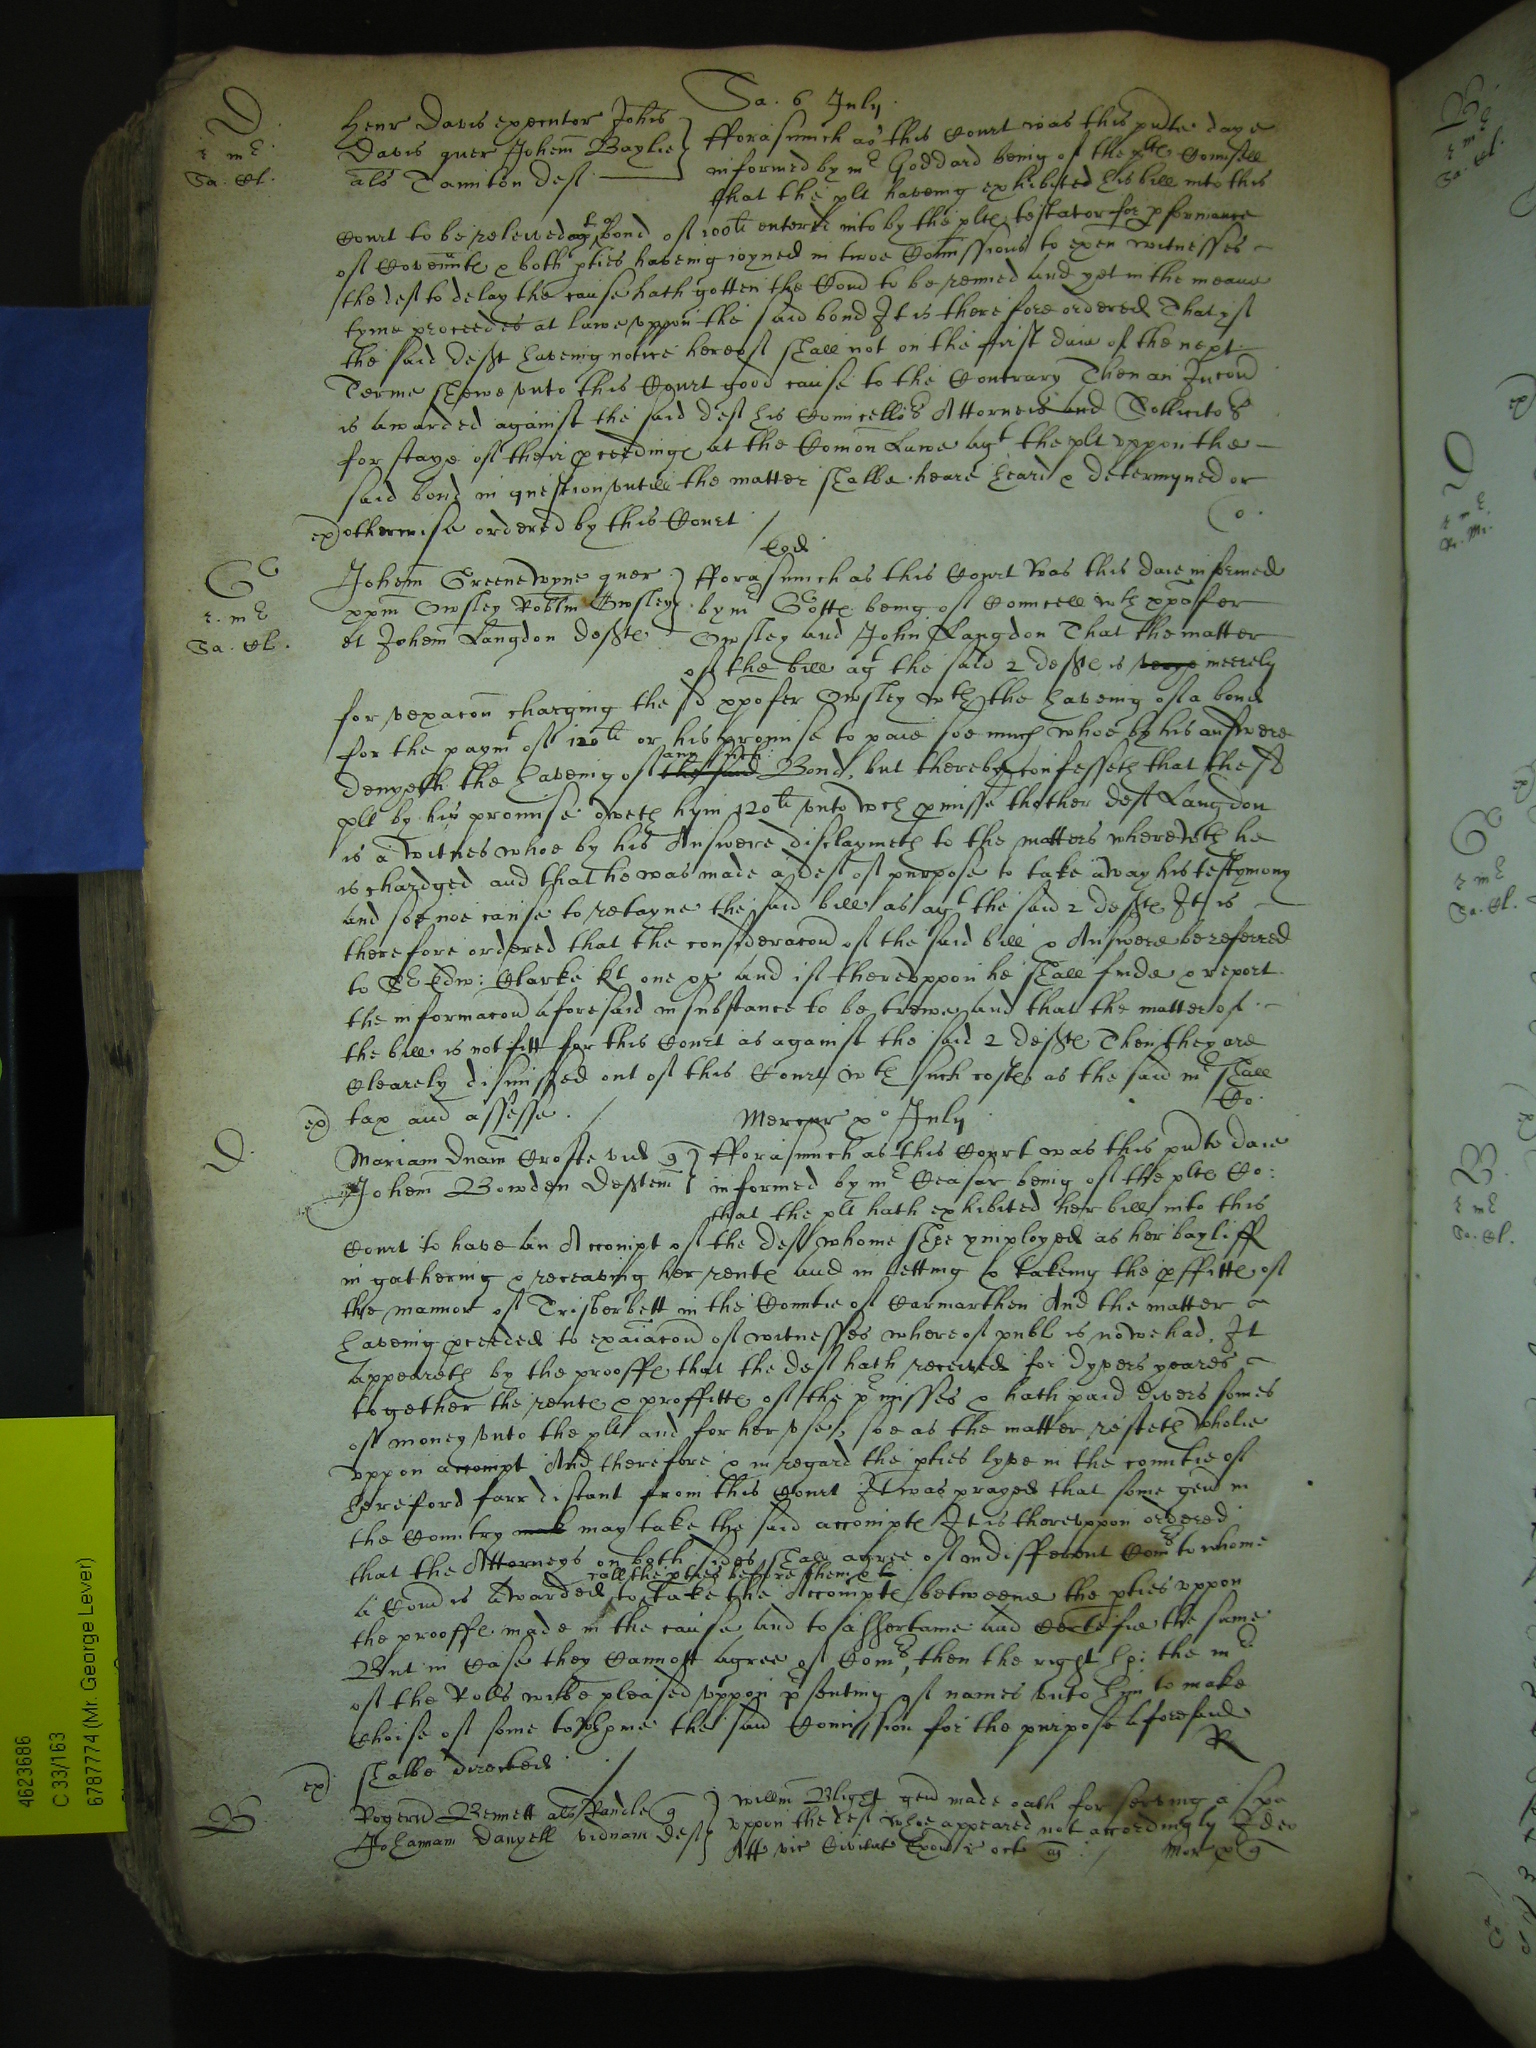 Sa. 6 July
D
r mr
Sa. Cl.
Henr Davis executor Johis
Davis quer Johem Baylie
als Tamiton deft
fforasmuch as this Court was this pnte daye
informed by mr Goddard being of the plts Counsell
that the plt haveing exhibited his bill into this
Court to be releived agt a bond of 100li entered into by the plts testator for pformance
of Covennts & both pties haveing ioyned in twoe Comissions to exen witnesses
the deft to delay the cause hath gotten the Comd to be renued and yet in the meane
tyme proceedes at lawe uppon the said bond It is therefore ordered That yf
the said defft haveing notice hereof shall not on the first daie of the next
Terme shewe unto this Court good cause to the Contrary Then an Iniccon
is awarded against the said deft his Councellors Attorneis and Sollicitors
for staye of their pceedings at the Comon Lawe agt the plt uppon the
said bond in question untill the matter shalbe heare heard & determyned or
ex otherwise ordered by this Court
Co.
Eod
G
r. mr
Sa. Cl.
Johem Greenewyne quer
xpm Owsley Robtm Owsley
et Johem Langdon deffts
fforasmuch as this Court was this daie informed
by mr Gotts being of Councell wth xpofer
Owsley and John Langdon That the matter
of the bill agt the said 2 deffts is verye meerely
for vexacon charging the sd xpofer Owsley wth the haveing of a bond
for the paymt of 120li or his promise to paie soe much whoe by his answere
denyeth the haveing of the said any such Bond, but thereby confesseth that the sd
plt by his promise oweth hym 120li unto wch pmisse thother deft Langdon
is a witnes whoe by his Answere disclaymeth to the matters wherewth he
is chardged and that he was made a deft of purpose to take away his testymony
and soe noe cause to retayne the said bill as agt the said 2 deffts It is
therefore ordered that the consideracon of the said bill & Answere be referred
to Sr Edw: Clarke kt one &c and if thereuppon he shall finde & report
the informacon aforesaid in substance to be trewe and that the matter of
the bill is not fitt for this Court as against the said 2 deffts Then they are
clearely dismissed out of this Court wth such costes as the said mr shall
ex tax and assesse.
Co.
Mercur xo July
D
Mariam Dnam Crofte vid q
Johem Bowden defftem
fforasmuch as this Court was this pnte daie
informed by mr Ceasar being of the plts Co:
that the plt hath exhibited her bill into this
Court to have an Accompt of the deft whome shee ymployed as her bayliff
in gathering & receaving her rents and in letting & takeing the pffitts of
the mannor of in the Countie of Carmarthen And the matter
haveing pceeded to exaiacon of witnesses whereof publ is nowe had. It
appeareth by the prooffs that the deft hath received for dyvers yeares
together the rents & proffitts of the pmisses & hath paid divers somes
of money unto the plt and for her use, soe as the matter resteth wholie
uppon accompt And therefore & in regard the pties lyve in the countie of
hereford farr distant from this Court It was prayed that some gen in
the Country may take the said accompts It is thereuppon ordered
that the Attorneys on both sides shall agree of indifferent Comrs to whome
call the pties before them &
a Comd is awarded to take the Accompts betweene the pties uppon
the prooffs made in the cause and to assertaine and Certefie the same
But in Case they Cannott agree of Comrs, then the right ho: the mr
of the Rolls wilbe pleased uppon psenting of names unto him to make
choise of some to whome the said Comission for the purpose aforesaid
ex shalbe directed
R
B
Rogerus Bennett als Randle q
Johannam Danyell viduam deft
Willm Blight gen made oath for serving a spa
uppon the deft whoe appeared not accordingly Ideo
Att vic Civitat Exon r oct
4623686
C 33/163
6787774 (Mr. George Lever)